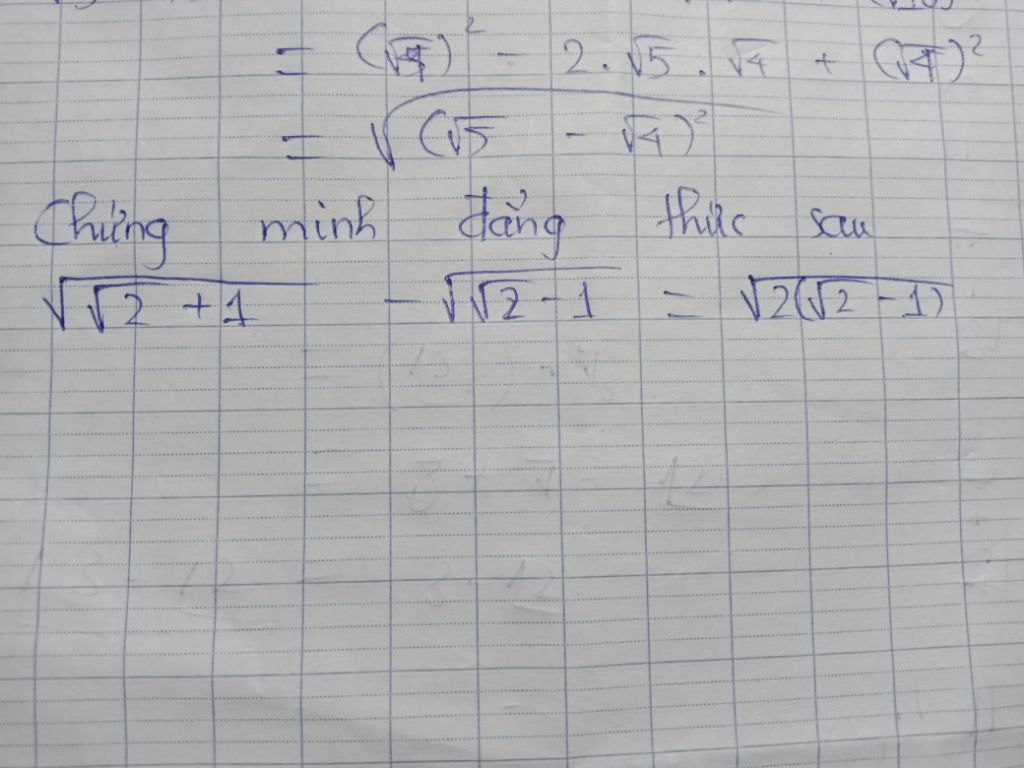 = (√4)² - 2.√5.√4 + (√4)²
= √((√5 - √4)²)
Chứng minh đẳng thức sau
√(√2 + 1) - √(√2 - 1) = √(2(√2 - 1))